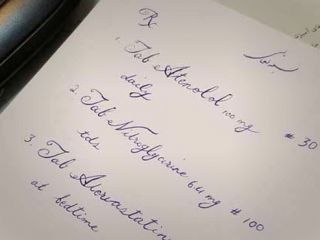 Rx
1. Tab Atenolol 100 mg # 30
daily
2. Tab Nitroglycerine 6.4 mg # 100
tds
3. Tab Atorvastatin
at bedtime